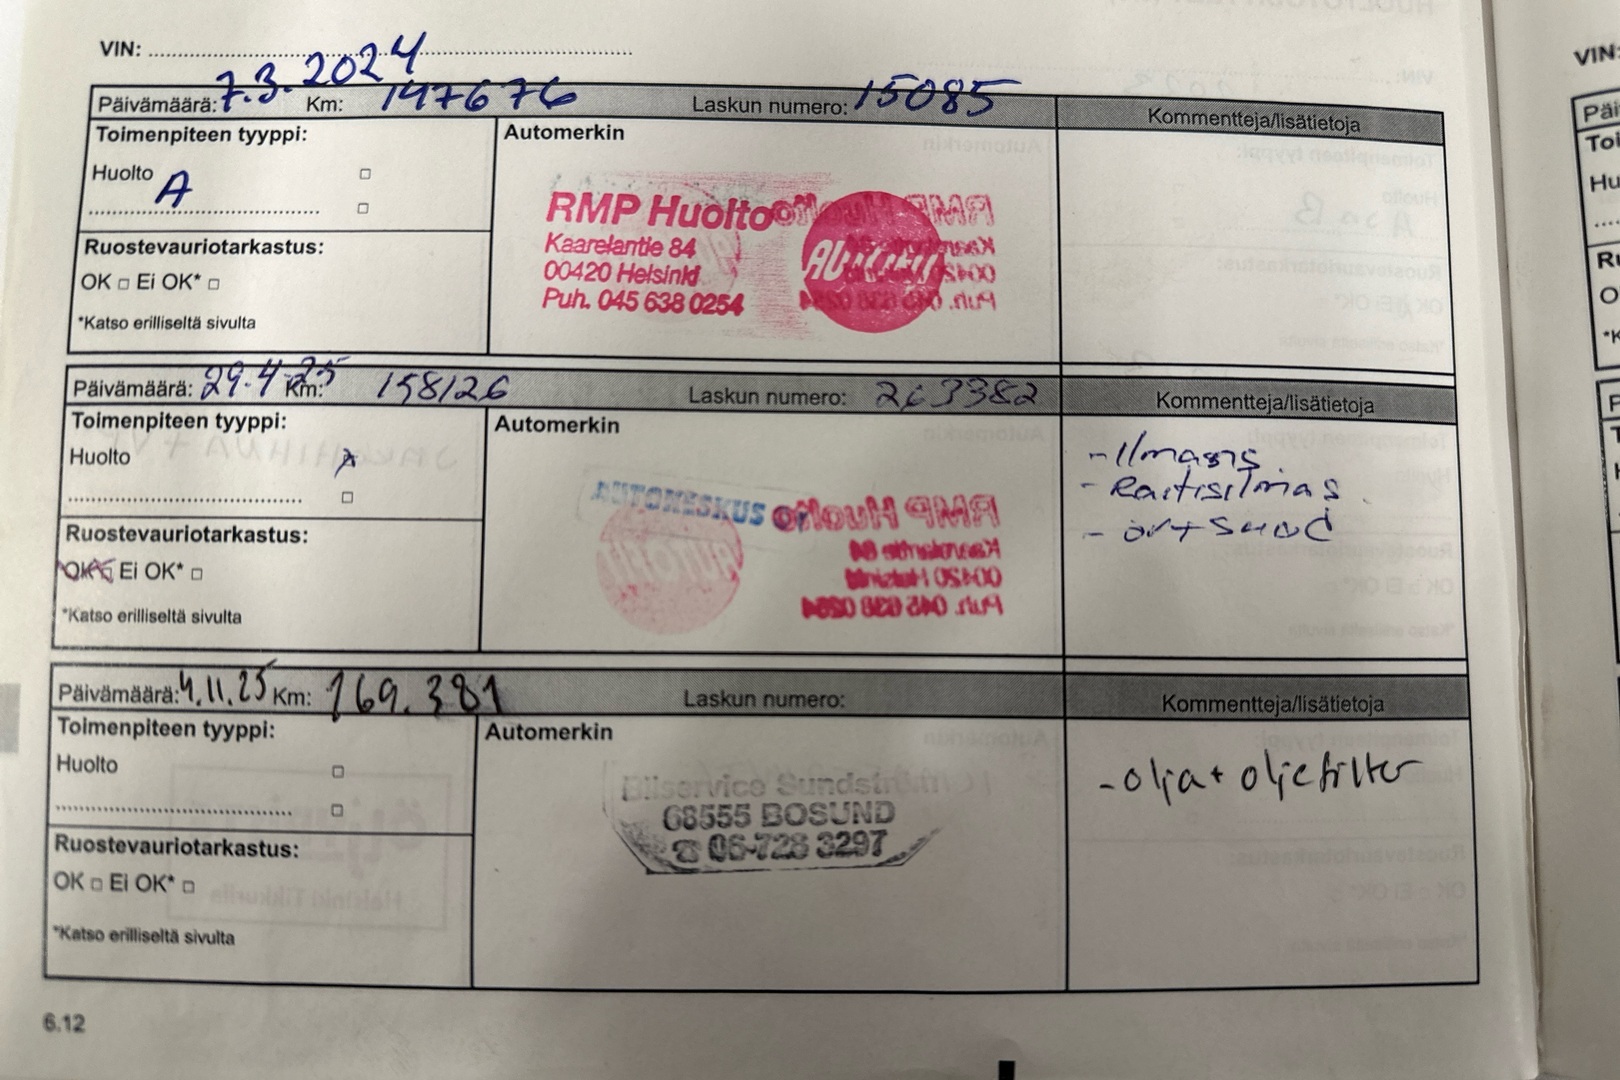 VIN:
Päivämäärä: 7.3.2024 Km: 147676 Laskun numero: 15085 Kommentteja/lisätietoja
Toimenpiteen tyyppi:
Automerkin
Huolto
A
RMP Huolto
Kaarelantie 84
00420 Helsinki
Puh. 045 638 0254
AUTOFIT
Ruostevauriotarkastus:
OK □ Ei OK* □
*Katso erilliseltä sivulta
Päivämäärä: 29.4.25 Km: 158126 Laskun numero: 263382 Kommentteja/lisätietoja
Toimenpiteen tyyppi:
Automerkin
Huolto
AUTOKESKUS
- Raitisilmas
Ruostevauriotarkastus:
OK Ei OK* □
*Katso erilliseltä sivulta
Päivämäärä: 4.11.25 Km: 169.381 Laskun numero: Kommentteja/lisätietoja
Toimenpiteen tyyppi:
Automerkin
Huolto
Bilservice Sundström
68555 BOSUND
☎ 06-728 3297
- olja + oljefilter
Ruostevauriotarkastus:
OK □ Ei OK* □
*Katso erilliseltä sivulta
6.12
VIN: